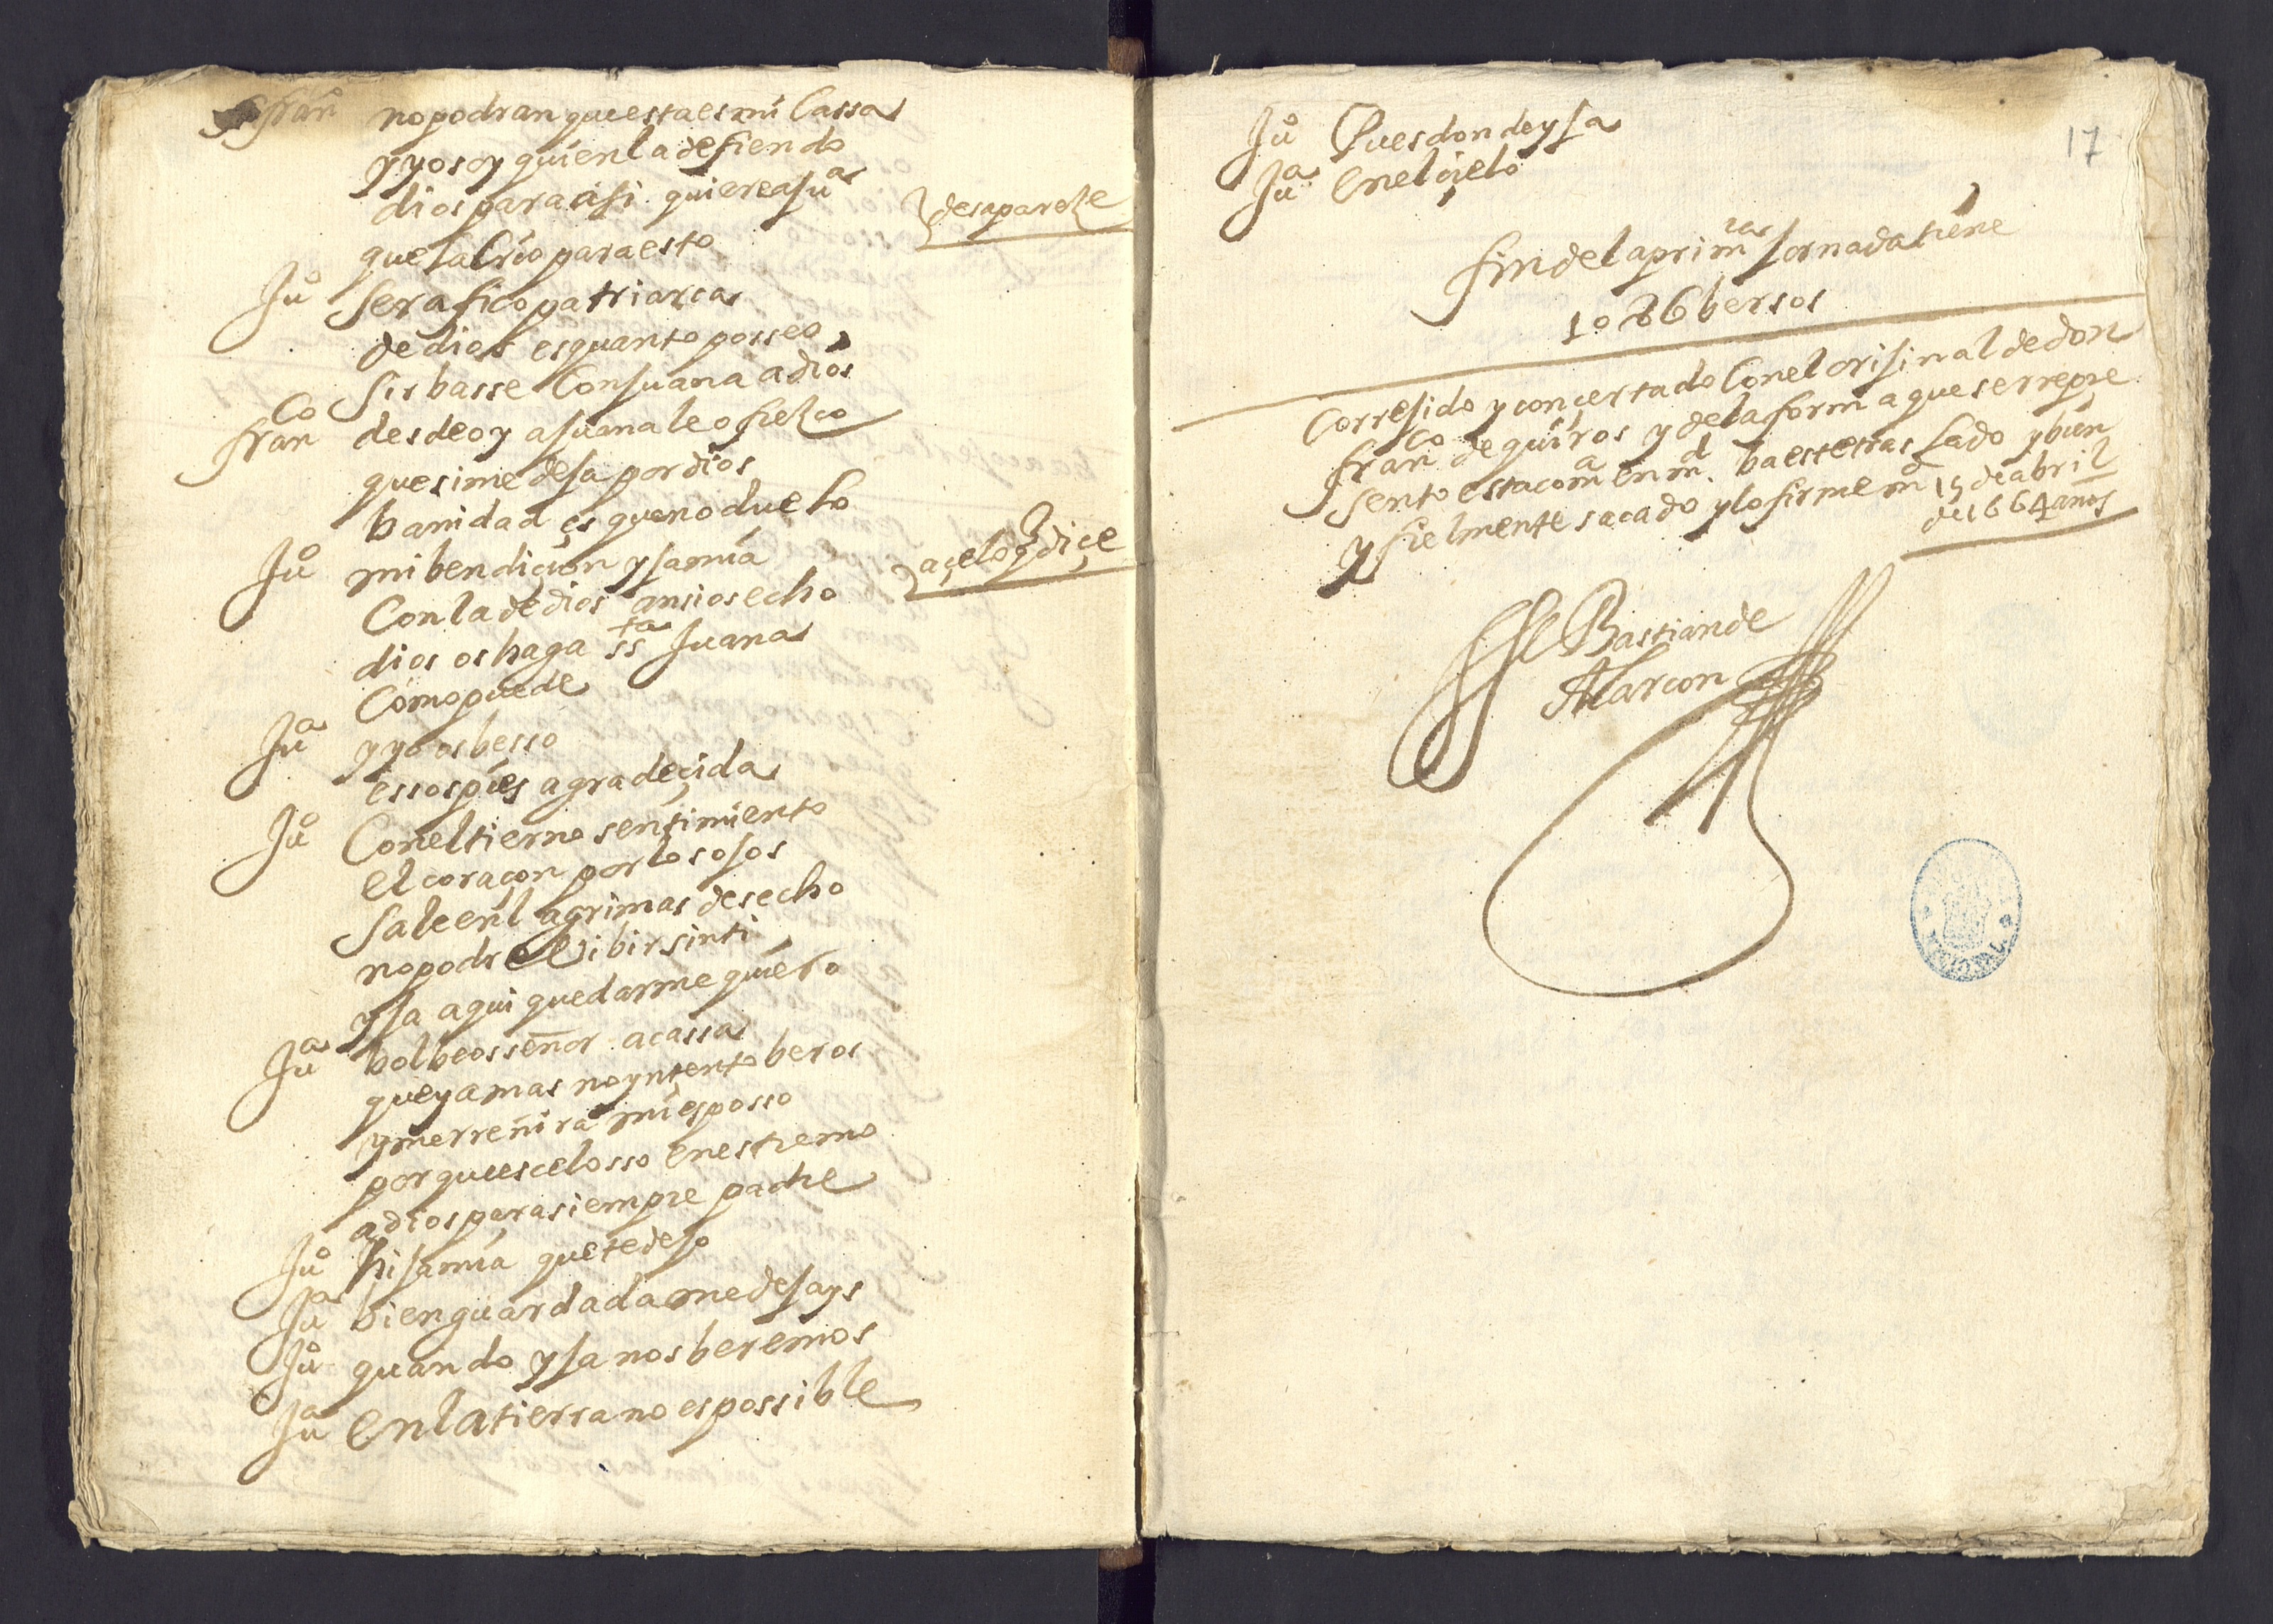 fran no podran que esta es mi Cassa
y yo soy quien la defiendo
dios para si quiere a Juª
desapareze
que la Crio para esto
Juº Serafico patriarca
de dios es quanto posseo
Sirbasse Con Juana a dios
franco desde oy a Juana le ofrezco
que si me desa por dios
banidad es que no duelo
Juº mi bendiçion ysa mia
açelo q dice
Con la de dios ansi os echo
dios os haga ssta Juana
Como puede
Juª y yo os besso
essos pies agradeçida
Juº Con el tierno sentimiento
el coraçon por los ojos
Sale en lagrimas desecho
no podre Vibir sin ti
ysa aqui quedarme quiero
Juª bolbeos señor a cassa
que ya mas no yntento beros
y me rreñira mi esposso
porque es celosso en estremo
a dios para siempre padre
Juº hisa mia que te deso
Juª bien guardada me desays
Juº quando ysa nos beremos
Juª en la tierra no es possible
17
Juº Pues donde ysa
Juª en el çielo
fin de la primra Jornada tiene
1086 bersos
Corresido y conçertado Con el orisinal de don
franco de quiros y de la forma que se rrepre
sento esta coma en md. ba este traslado ybien
y fielmente sacado y lo firme en md 15 de abril
de 1664 años
Bastian de
Alarcon